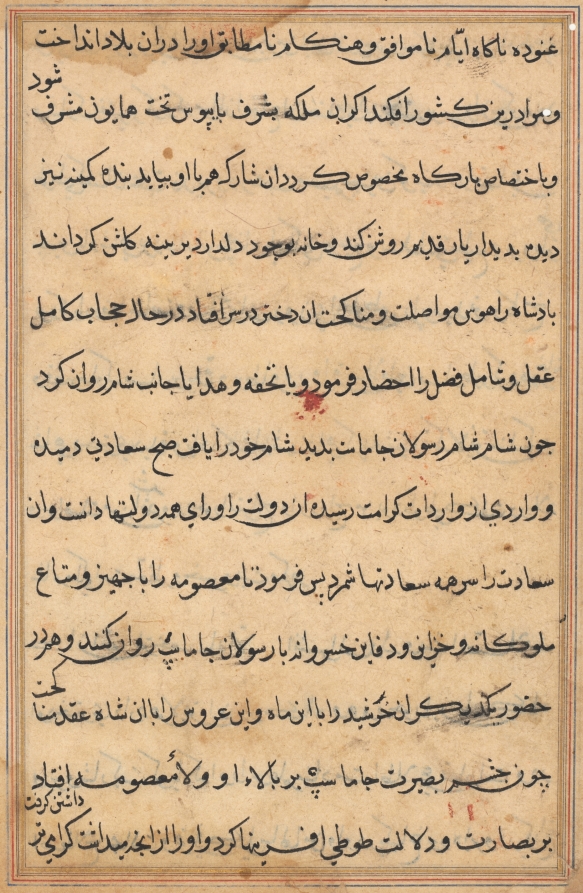 غنوده ناکاه ایّام ناموافق و هنکام نامطابق اورا دران بلاد انداخت
ومرا درین کشور افکند اکر ان ملکه بشرف پابپوس تخت همایون مشرف شود
وباختصاص بارکاه مخصوص کردد ان شارک هم با او بیاید بنده کمینه نیز
دیده بدیدار یار قدیم روشن کند وخانه بوجود دلدار دیرینه کلشن کرداند
بادشاه را هوس مواصلت ومناکحت ان دختر در سر افتاد در حال حجاب کامل
عقل وشامل فضل را احضار فرمود و با تحفه و هدایا جانب شام روان کرد
جون شام شام رسولان جاماست بدید شام خود را یافت صبح سعادتی دمیده
و واردی از واردات کرامت رسیده ان دولت را ورای همه دولتها دانست وان
سعادت را سر همه سعادتها شمرد پس فرمود تا معصومه را با جهیز ومتاع
ملوکانه و خزاین ودفاین خسروانه با رسولان جاماسپ روان کنند وهم در
حضور یکدیکر ان خرشید را با این ماه واین عروس را با ان شاه عقد مناکحت
چون چشم بصیرت جاماسپ بر بالاء او و ولاء معصومه افتاد
بر بصارت ودلالت طوطی افرینها کرد واو را از انچه میداشت کرامی تر داشتن کرفت